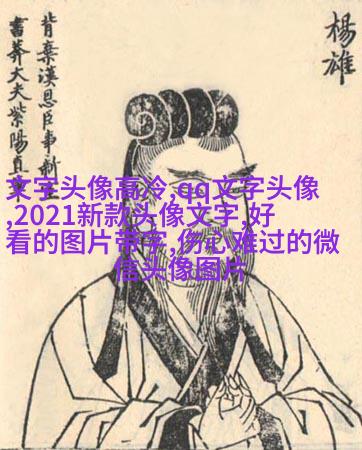 楊雄
背棄漢恩臣事新
書莽大夫紫陽直
文字头像高冷,qq文字头像
,2021新款头像文字,好
看的图片带字,伤心难过的微
信头像图片